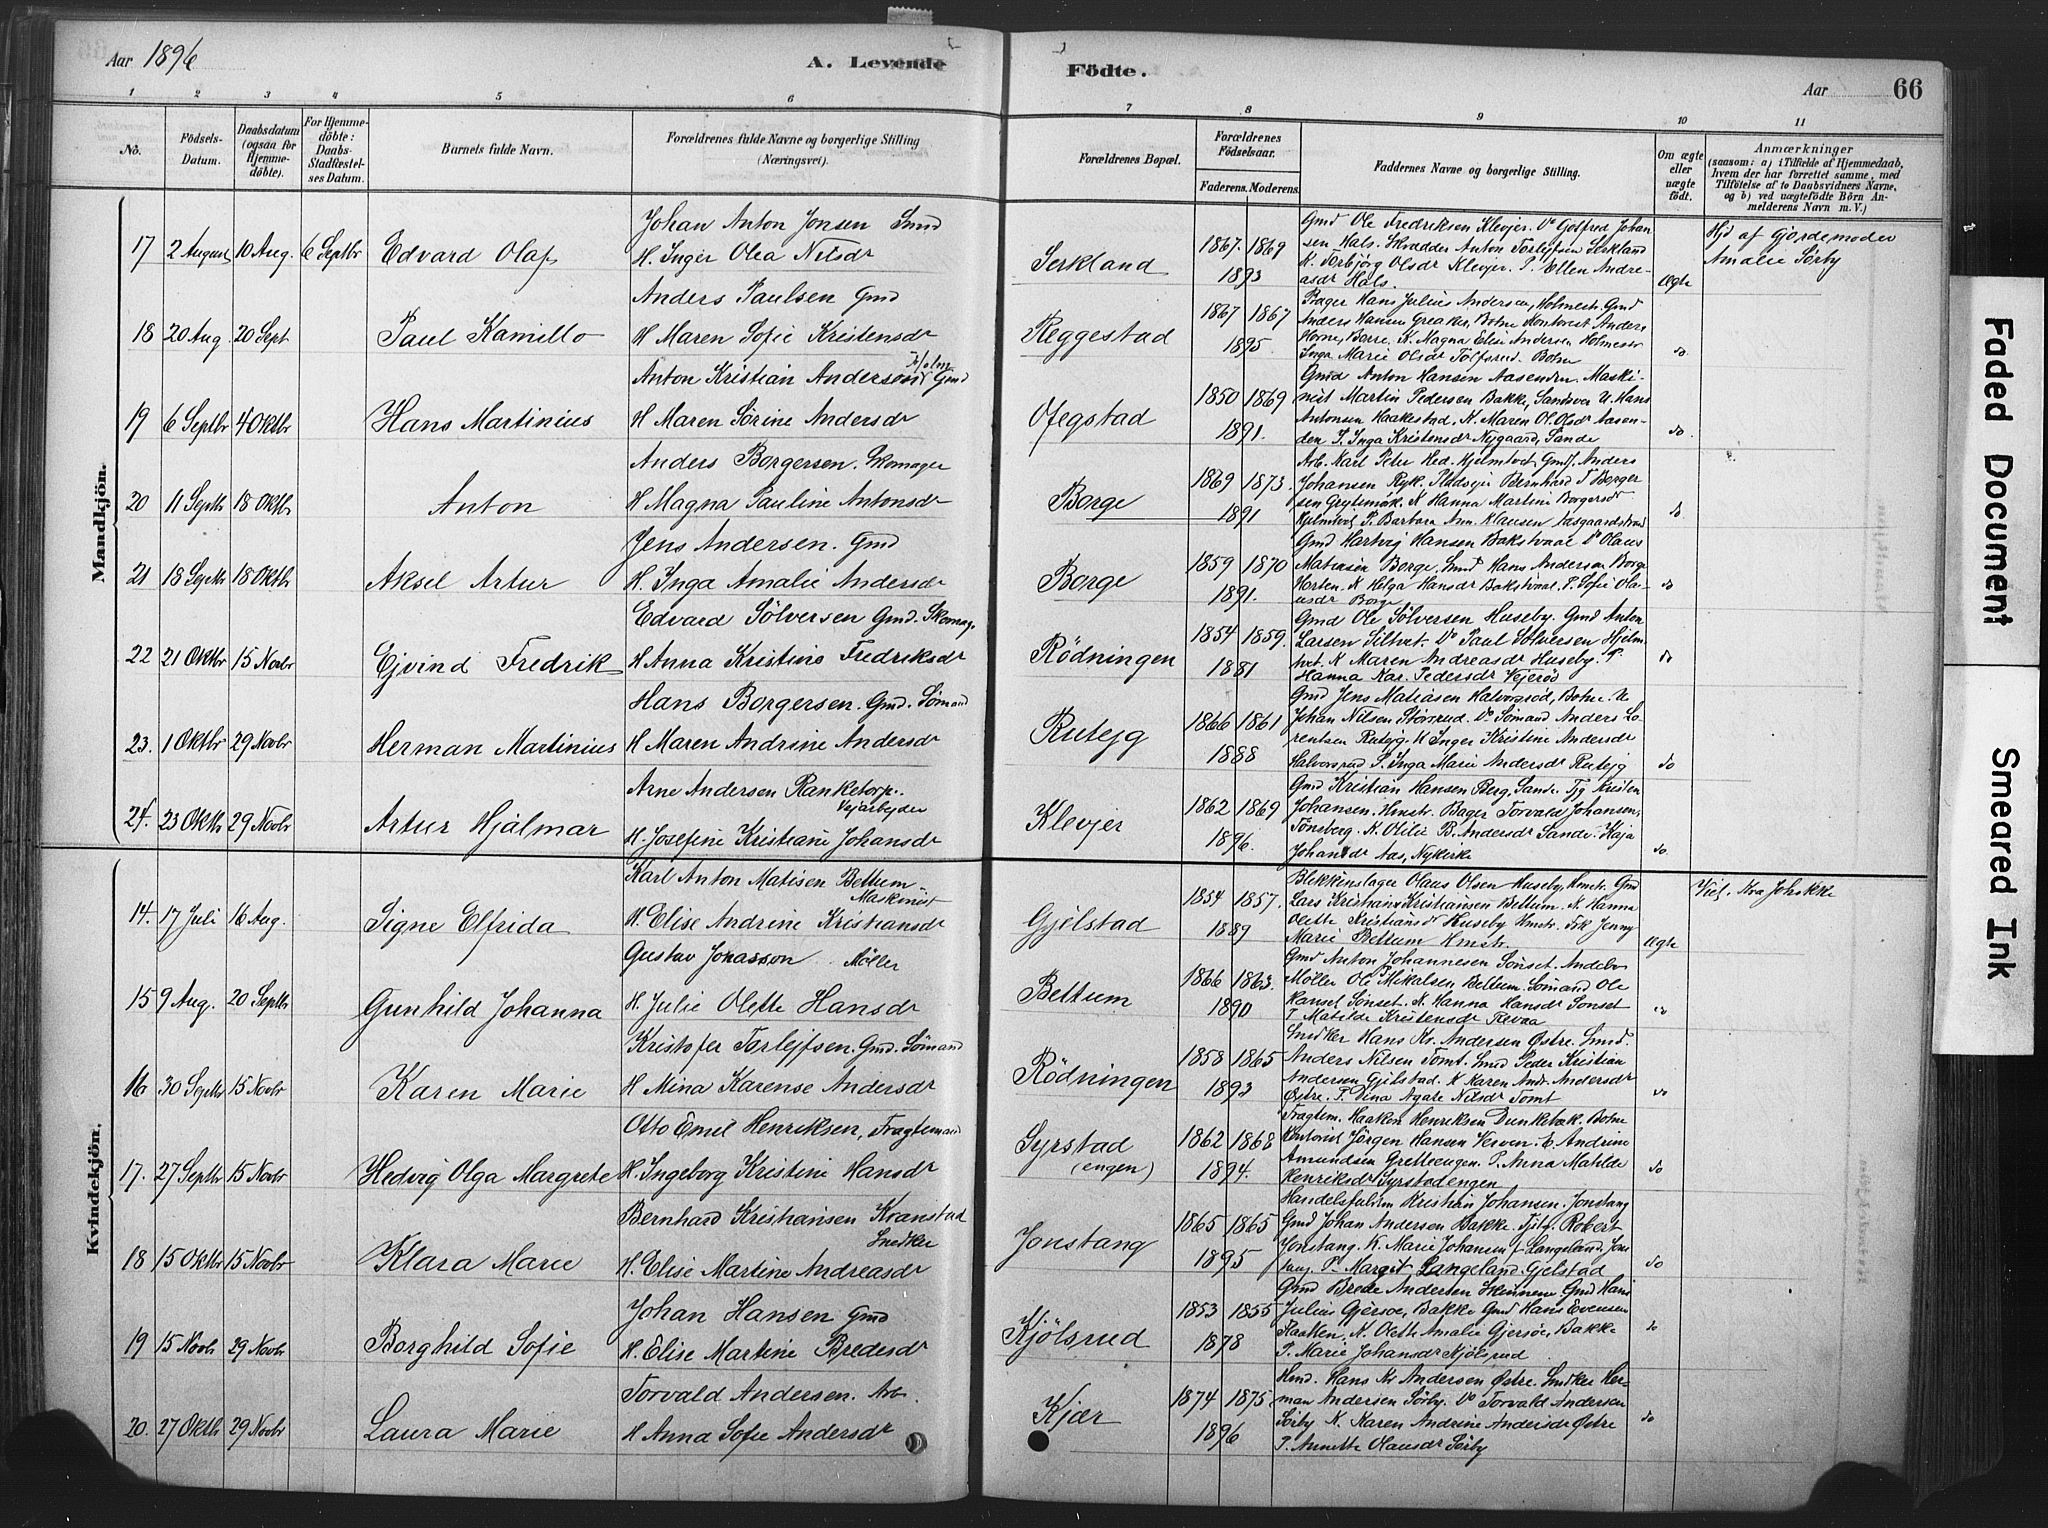 Aar 1896
A. Levende
Födte.
Aar
66
1 2 3 4 5 6 7 8 9 10 11
No.
Födsels-Datum.
Daabsdatum (ogsaa for Hjemmedöbte).
For Hjemmedöbte: Daabs-Stadfæstelses Datum.
Barnets fulde Navn.
Forældrenes fulde Navne og borgerlige Stilling
(Næringsvei).
Forældrenes Bopæl.
Forældrenes Födselsaar.
Faderens. Moderens.
Faddernes Navne og borgerlige Stilling.
Om ægte eller uægte födt.
Anmærkninger
(saasom: a) i Tilfælde af Hjemmedaab, hvem der har forrettet samme, med Tilföielse af to Daabsvidners Navne, og b) ved uægtefödte Börn Anmelderens Navn m. V.)
Mandkjön.
17 2 August 10 Aug. 6 Septbr Edvard Olaf
Johan Anton Jonsen Smd
H. Inger Olea Nilsdr
Serkland
1867. 1869
1893
Gmd Ole Fredriksen Klevjer. Do Gotfred Johan
sen Hals. Skrædder Anton Torlejfsen Serkland
K. Torbjörg Olsdr Klevjer. P. Ellen Andre-
asdr Hals.
Ægte
Hjd af Gjordemoder
Amalie Sörby
18 20 Aug. 20 Sept Paul Kamillo
Anders Paulsen Gmd
H Maren Sofie Kristensdr
Reggestad
1867 1867
1895.
Bager Hans Julius Andersen, Holmestr. Gmd
Anders Hansen Greaker, Botne Kontorist Anders
Horne, Borre. K. Magna Elise Andersen Holmestr
Inga Marie Olsdr Tolfsrud. Botne
do
19 6 Septbr 4 Oktbr Hans Martinius
Anton Kristian Andersen Gmd
H Maren Sörine Andersdr
Ofegstad
1850 1869
1891.
Gmd Anton Hansen Aasenden. Maski-
nist Martin Pedersen Bakke, Sandsvær U. Hans
Antonsen Haakestad. K. Maren Ol. Olsdr Aasen-
den P. Inga Kristensdr Nygaard, Sande
do.
20 11 Septbr 18 Oktbr Anton
Anders Borgersen. Skomager
H Magna Pauline Antonsdr
Borge
1869 1873.
1891
Arb. Karl Peter Hed. Hjelmtvet Gmdf. Anders
Johansen Ryk. Pladsejer Bernhard T Borger
sen Grytemök K Hanna Martine Borgersdr
Hjelmtvet P. Barbara Ann. Klausen Aasgaardstrand
do
21 18 Septbr 18 Oktbr Aksel Artur
Jens Andersen. Gmd
H. Inga Amalie Andersdr
Borge
1859 1870
1891.
Gmd Hartvig Hansen Bakstvaal Do Olaus
Matiasen Borge. Smd Hans Anderson Borge
Horten. K Helga Hansdr Bakstvaal. P. Sofie Ola-
usdr Borge
do
22 21 Oktbr 15 Novbr Ejvind Fredrik
Edvard Sölversen Gmd. Skomag.
H Anna Kristine Fredriksdr
Rödningen
1854 1859.
1881
Gmd Ole Sölversen Huseby. Gmd Anton
Larsen Siltvet. Do Paul Sölversen Hjelm
tvet. K Maren Andreasdr Huseby. P.
Hanna Kar. Pedersdr Vejeröd
do
23. 1 Oktbr 29 Novbr Herman Martinius
Hans Borgersen. Gmd. Sömand
H Maren Andrine Andersdr
Rutejg
1866 1861
1888
Gmd Jens Matiasen Halvorsröd, Botne. U
Johan Nilsen Störsrud. Do Sömand Anders Lo-
rentsen Rutejg. K Inger Kristine Andersdr
Halvorsrud P. Inga Marie Andersdr Rutejg
do
24. 23 Oktbr 29 Novbr Artur Hjalmar
Arne Andersen Ranketorp.
Vejarbejder
H. Josefine Kristiane Johansdr
Klevjer
1862 1869
1896.
Gmd Kristian Hansen Berg. Sande. Tjg Kristen
Johansen. Hmstr. Bager Torvald Johansen,
Tönsberg. K. Otilie B. Andersdr Sande. Kaja
Johansdr Aas, Nykirke
do.
Kvindekjön.
14. 17 Juli 16 Aug. Signe Elfrida
Karl Anton Matisen Bettum
Maskinist
H. Elise Andrine Kristiansdr
Gjelstad
1854 1857.
1889
Blikkenslager Olaus Olsen Huseby, Hmstr. Gmd
Lars Kristians Kristiansen Bettum. K Hanna
Olette Kristiansdr Huseby Hmstr. Frk Jenny
Marie Bettum Hmstr.
Ægte
15 9 Aug. 20 Septbr Gunhild Johanna
Gustav Jonasson. Möller
H. Julie Olette Hansdr
Bettum
1866 1863.
1890
Gmd Anton Johannesen Sönset. Andebo
Möller Ole Mikalsen Bettum. Sömand Ole
Hansen Sönset. K. Hanna Hansdr Sönset
P Matilde Kristensdr Revaa
do
16 30 Septbr 15 Novbr Karen Marie
Kristofer Torlejfsen. Gmd. Sömand
H Mina Karense Andersdr
Rödningen
1858 1865
1893
Snedker Hans Kr. Andersen Östre. Smd.
Anders Nilsen Tomt. Smd Peder Kristian
Andersen Gjelstad. K Karen Andr. Andersdr
Östre. P. Dina Agate Nilsdr Tomt
do
17. 27 Septbr 15 Novbr Hedvig Olga Margrete
Otto Emil Henriksen, Fragtemand
H. Ingeborg Kristine Hansdr
Syrstad
(engen)
1862 1868
1894.
Fragtem. Haakon Henriksen Dunkebæk. Botne
Kontorist Jörgen Hansen Verven. E. Andrine
Amundsen Gretteengen. P. Anna Matilde
Henriksdr Syrstadengen
do
18 15 Oktbr 15 Novbr Klara Marie
Bernhard Kristiansen Kvanstad
Snedker
H. Elise Martine Andreasdr
Jonstang
1865 1865
1895
Handelsfuldm Kristian Johansen. Jonstang
Gmd Johan Andersen Bakke. Robert
Jonstang. K. Marie Johansen f Langeland. Jons
tang. P. Margit Langeland. Gjelstad
do
19 15 Novbr 29 Novbr Borghild Sofie
Johan Hansen Gmd
H. Elise Martine Bredesdr
Kjölsrud
1853 1855
1878
Gmd Brede Andersen Skinnene Gmd Hans
Julius Gjersöe, Bakke Gmd Hans Evensen
Haaken. K. Olette Amalie Gjersöe, Bakke
P. Marie Johansdr Kjölsrud
do
20. 27 Oktbr 29 Novbr Laura Marie
Torvald Andersen. Arb.
H Anna Sofie Andersdr
Kjær
1874 1875
1896
Smd. Hans Kr Andersen Östre. Snedker Her-
man Andersen Sörby. Do Torvald Andersen
Sörby K. Karen Andrine Andersdr Östre
P. Annette Olausdr Sörby
do
Faded Document
Smeared Ink